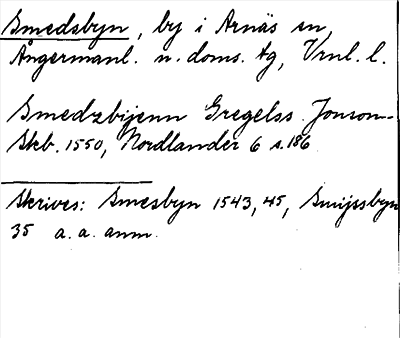 Smedsbyn, by i Arnäs sn,
Ångermanl. n. doms. tg, Vrnl. l.
Smedzbijenn Gregelss Jonson
Skb. 1550, Nordlander 6 s. 186
Skrives: Smesbyn 1543, 45, Smijssbyn
35 a. a. anm.